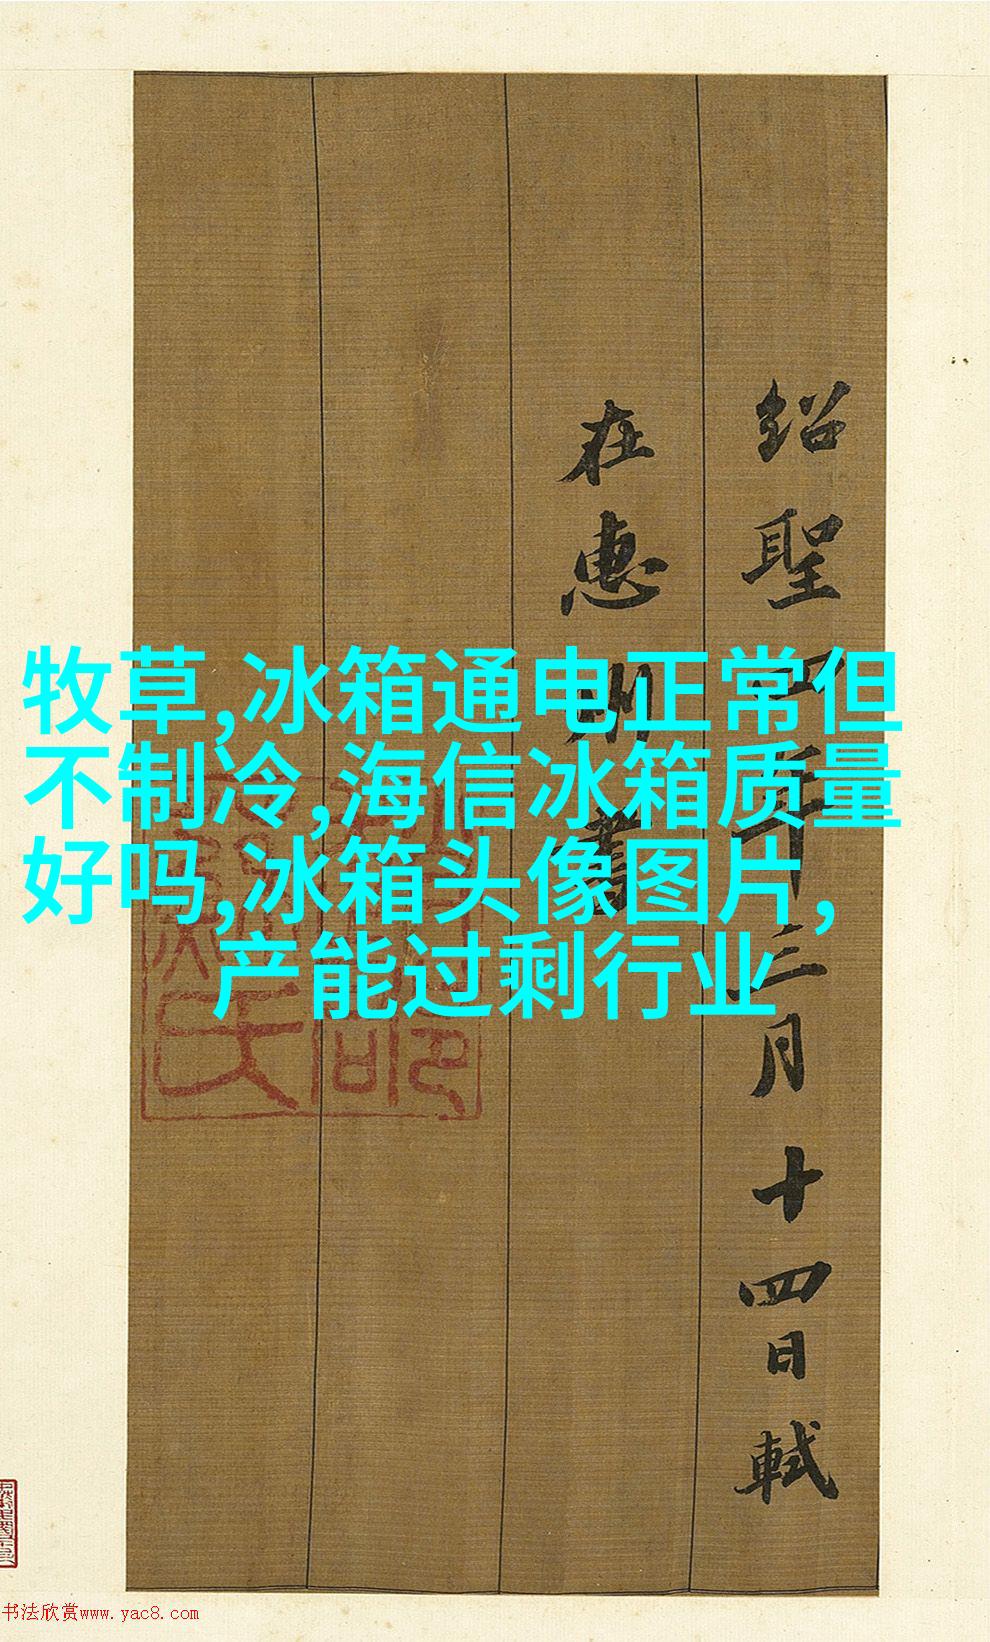 牧草,冰箱通电正常但
不制冷,海信冰箱质量
好吗,冰箱头像图片,
产能过剩行业
紹聖四年三月十四日軾
在惠州書
书法欣赏www.yac8.com